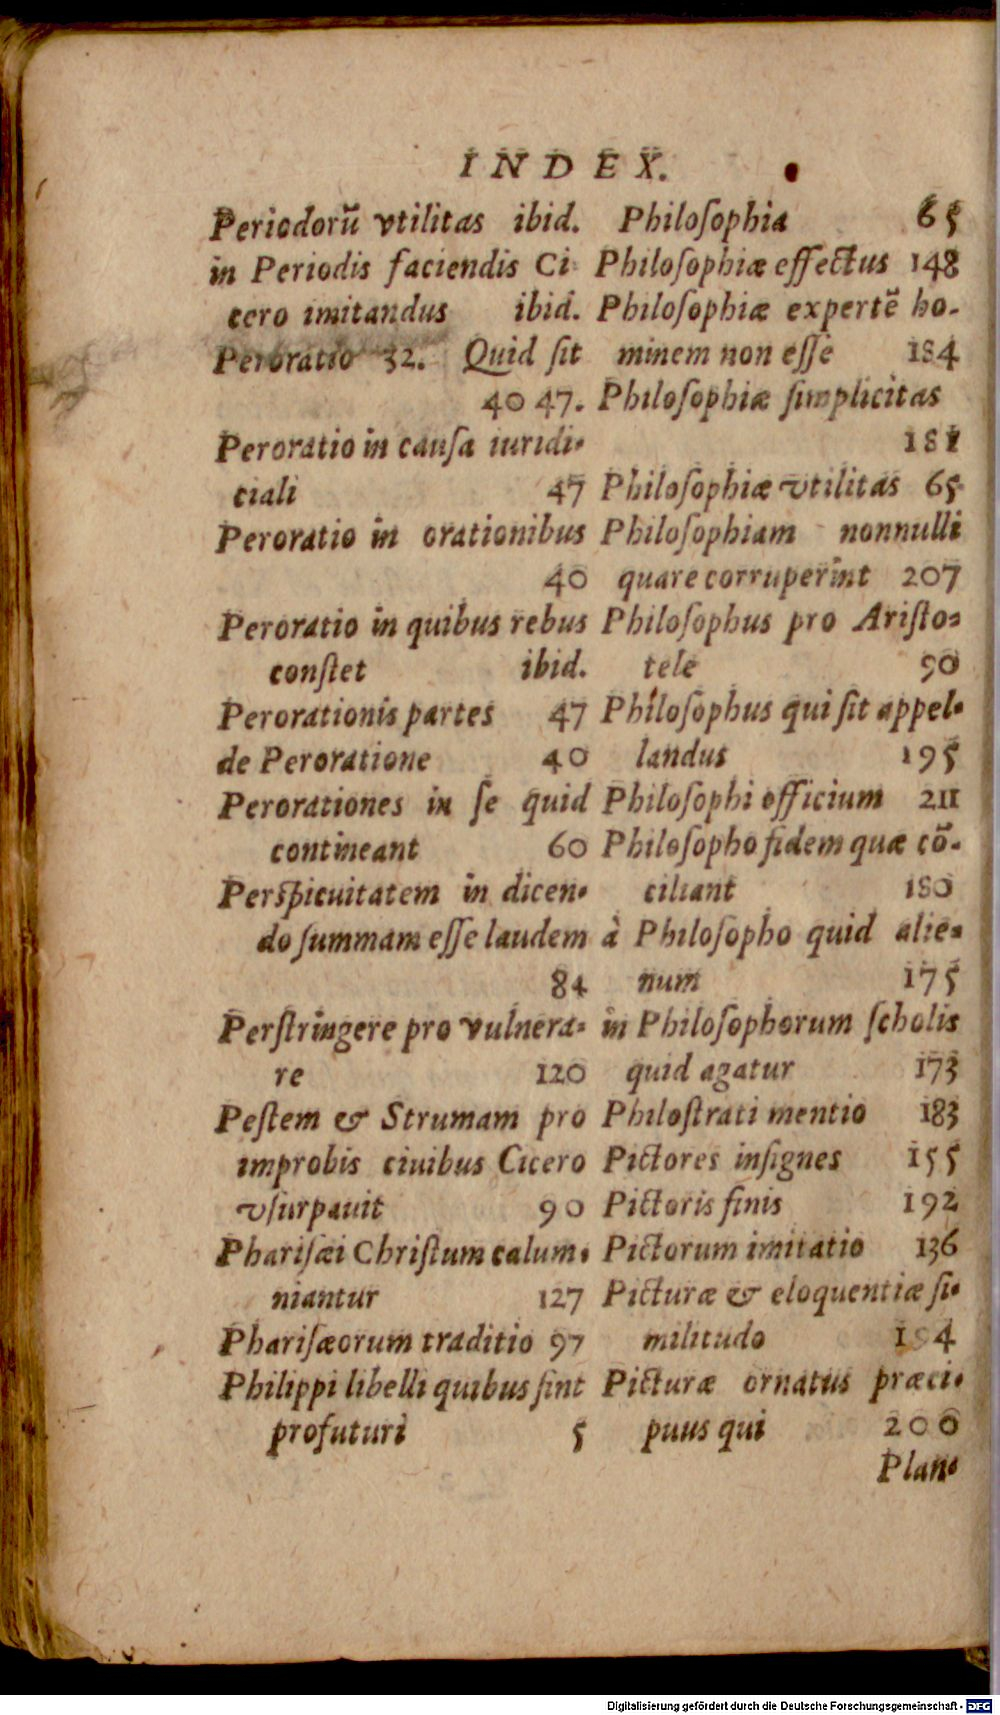 INDEX.
Periodorū vtilitas ibid.
in Periodis faciendis Ci
cero imitandus ibid.
Peroratio 32. Quid ſit
40 47.
Peroratio in cauſa iuridi-
ciali 47
Peroratio in orationibus
40
Peroratio in quibus rebus
conſtet ibid.
Perorationis partes 47
de Peroratione 40
Perorationes in ſe quid
contineant 60
Perſpicuitatem in dicen-
do ſummam eſſe laudem
84
Perſtringere pro vulnera-
re 120
Peſtem & Strumam pro
improbis ciuibus Cicero
vſurpauit 90
Phariſæi Chriſtum calum-
niantur 127
Phariſæorum traditio 97
Philippi libelli quibus ſint
profuturi 5
Philoſophia 65
Philoſophiæ effectus 148
Philoſophiæ expertē ho-
minem non eſſe 184
Philoſophiæ ſimplicitas
181
Philoſophiæ vtilitas 65
Philoſophiam nonnulli
quare corruperint 207
Philoſophus pro Ariſto-
tele 90
Philoſophus qui ſit appel-
landus 195
Philoſophi officium 211
Philoſopho fidem quæ cō-
ciliant 180
à Philoſopho quid alie-
num 175
in Philoſophorum ſcholis
quid agatur 173
Philoſtrati mentio 183
Pictores inſignes 155
Pictoris finis 192
Pictorum imitatio 136
Picturæ & eloquentiæ ſi-
militudo 194
Picturæ ornatus præci-
puus qui 200
Plan-
Digitalisierung gefördert durch die Deutsche Forschungsgemeinschaft - DFG